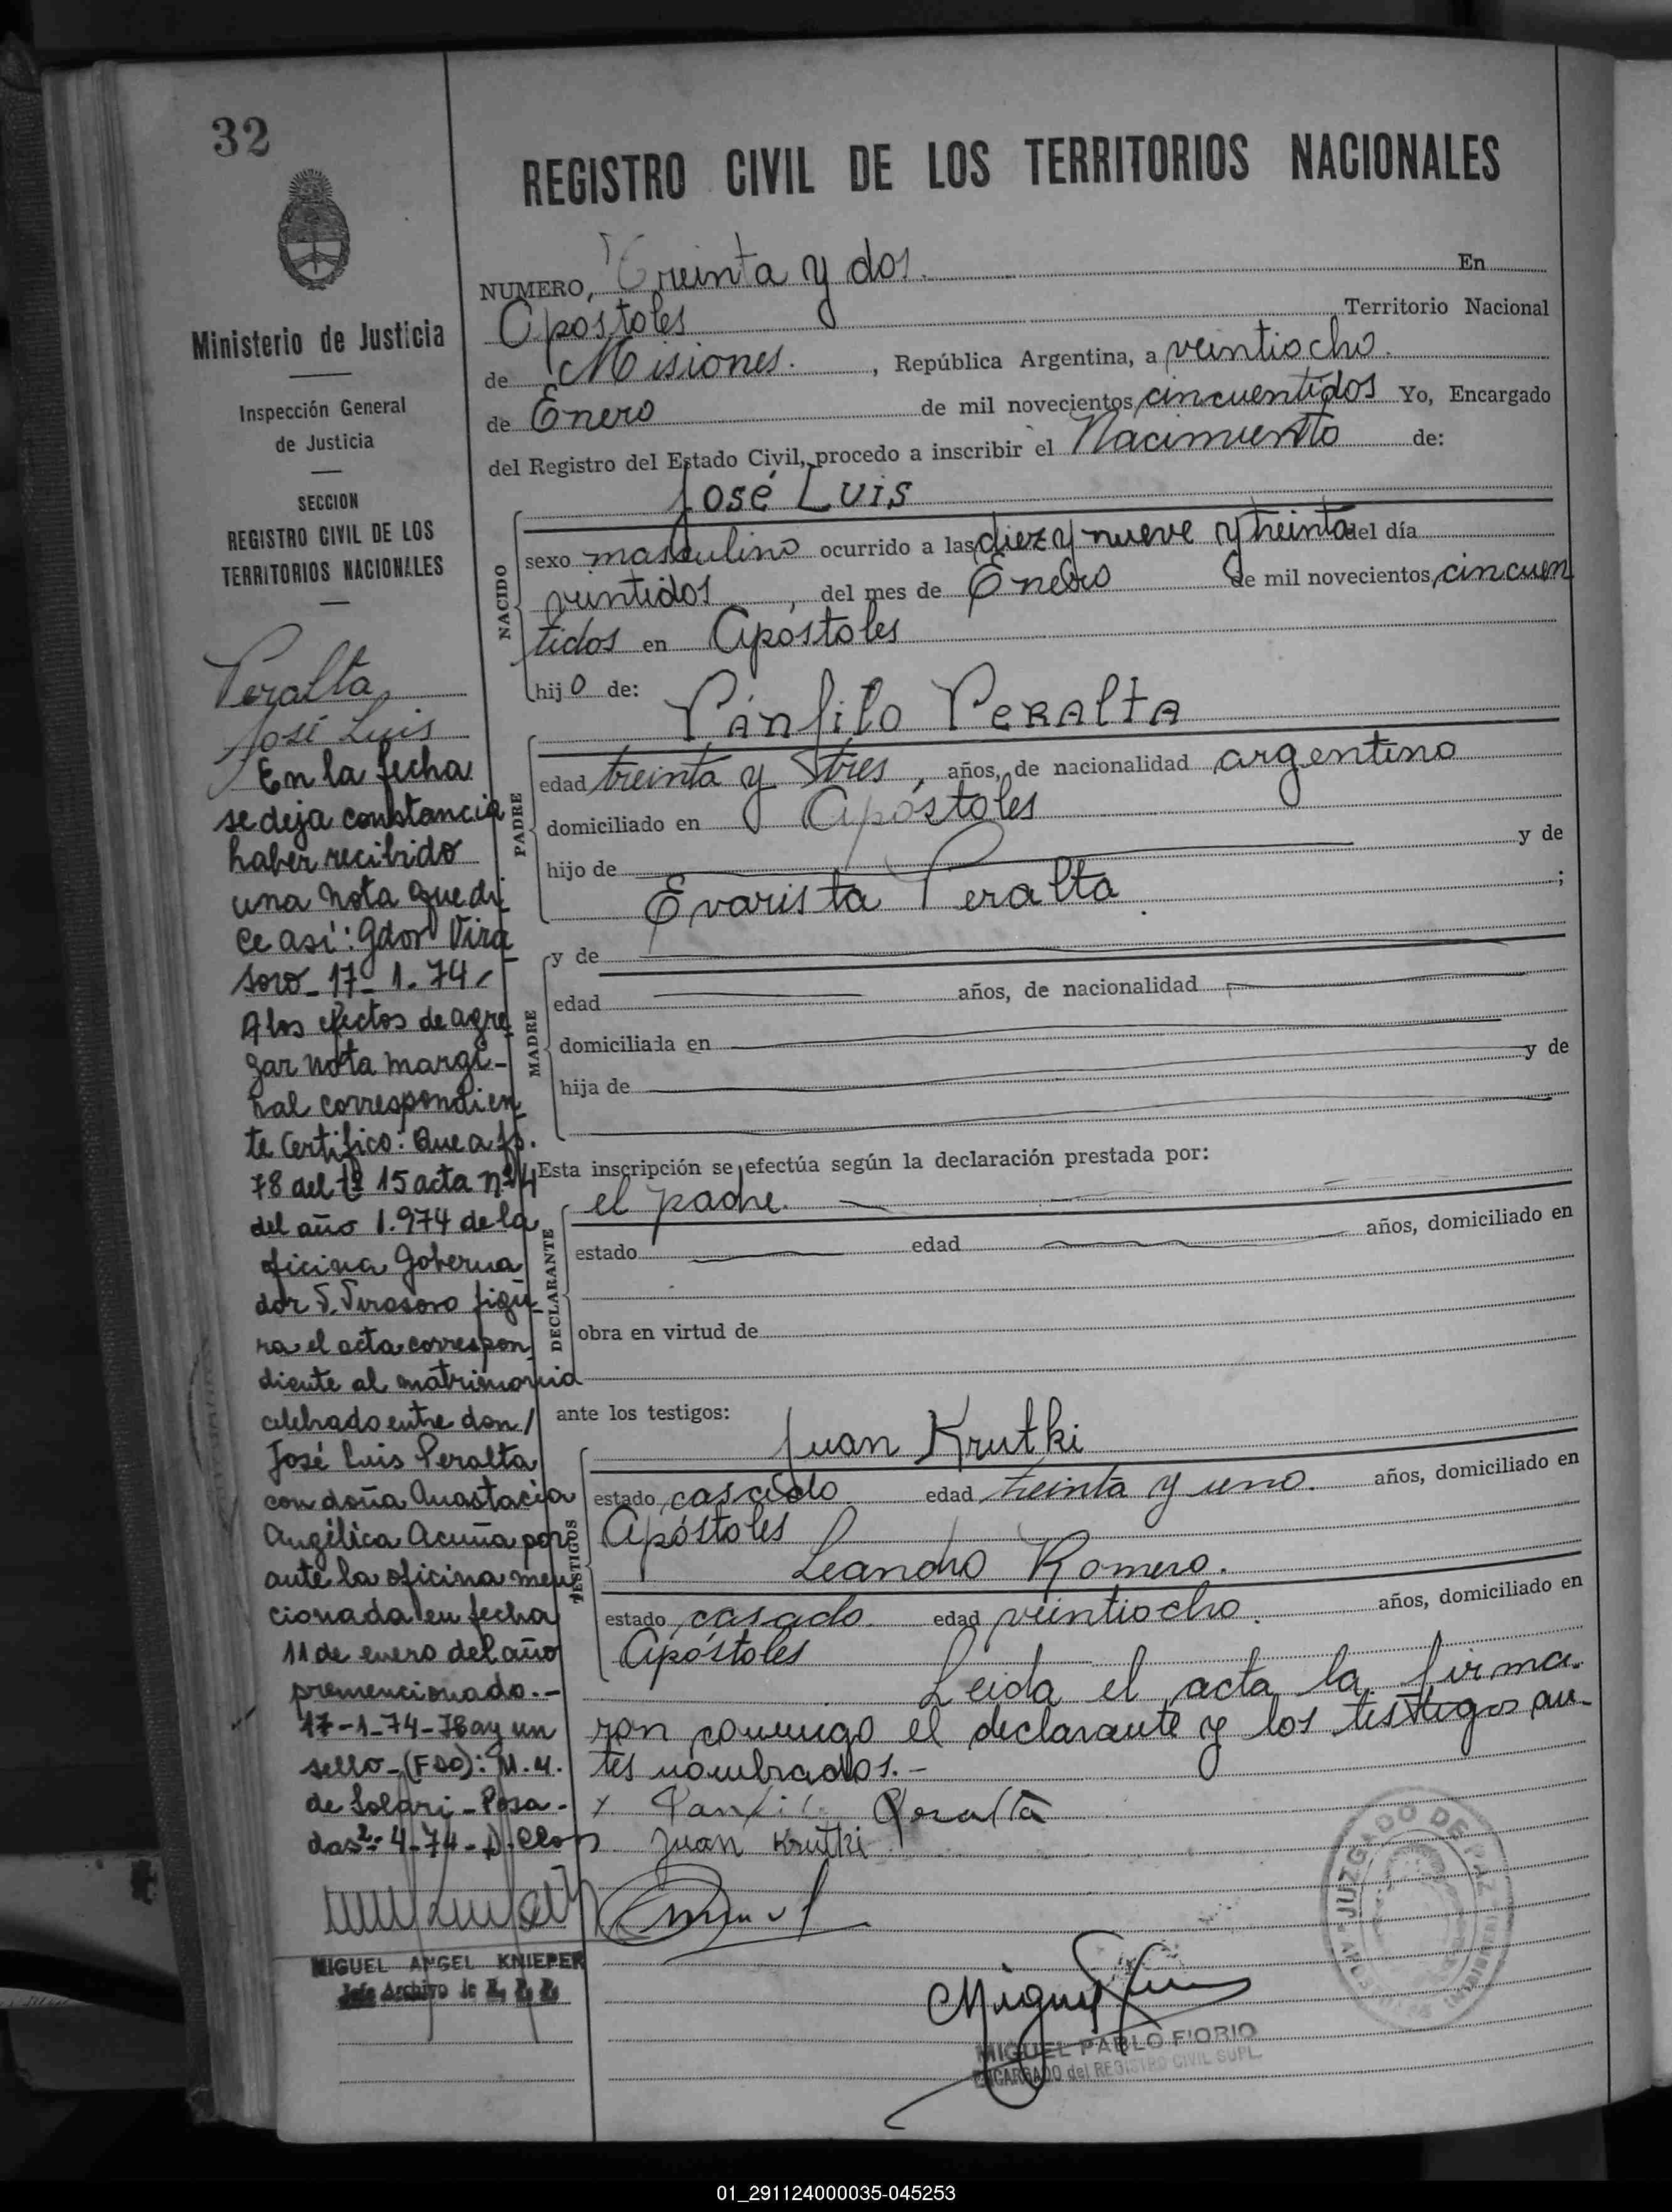 32
Ministerio de Justicia
Inspección General
de Justicia
SECCION
REGISTRO CIVIL DE LOS
TERRITORIOS NACIONALES
Peralta,
José Luis
En la fecha
se deja constancia
haber recibido
una nota que di
ce así: Gdor Vira
soro - 17 - 1. 74 -
A los efectos de agre
gar nota margi-
nal correspondien
te Certifico: Que a fs.
78 del tº 15 acta nº 4
del año 1.974 de la
oficina Goberna
dor V. Virasoro figu
ra el acta correspon
diente al matrimonio
celebrado entre don /
José Luis Peralta
con doña Anastacia
Angélica Acuña por
ante la oficina men
cionada en fecha
11 de enero del año
premencionado.-
17-1-74-Hay un
sello-(FDO): M. M.
de Solari - Posa-
das 2-4-74-
MIGUEL ANGEL KNIEPER
Jefe Archivo de
REGISTRO CIVIL DE LOS TERRITORIOS NACIONALES
NUMERO, Treinta y dos. En
Apostoles Territorio Nacional
de Misiones. , República Argentina, a veintiocho.
de Enero de mil novecientos cincuentidos Yo, Encargado
del Registro del Estado Civil, procedo a inscribir el Nacimiento de:
José Luis
NACIDO
sexo masculino ocurrido a las diez y nueve y treinta del día
veintidos , del mes de Enero de mil novecientos cincuen
tidos en Apóstoles
hijo de:
Pánfilo Peralta
PADRE
edad treinta y tres , años, de nacionalidad argentino
domiciliado en Apóstoles
hijo de y de
Evarista Peralta ;
y de
MADRE
edad años, de nacionalidad
domiciliada en
hija de y de
Esta inscripción se efectúa según la declaración prestada por:
el padre.
DECLARANTE
estado edad años, domiciliado en
obra en virtud de
ante los testigos:
Juan Krutki
TESTIGOS
estado casado edad treinta y uno. años, domiciliado en
Apóstoles
Leandro Romero.
estado casado. edad veintiocho. años, domiciliado en
Apóstoles
Leida el acta la firma-
ron conmigo el declarante y los testigos an-
tes nombrados.-
x Panfilo Peralta
Juan Krutki
JUZGADO DE PAZ
MIGUEL PABLO FIORIO
ENCARGADO del REGISTRO CIVIL SUPL.
01_291124000035-045253